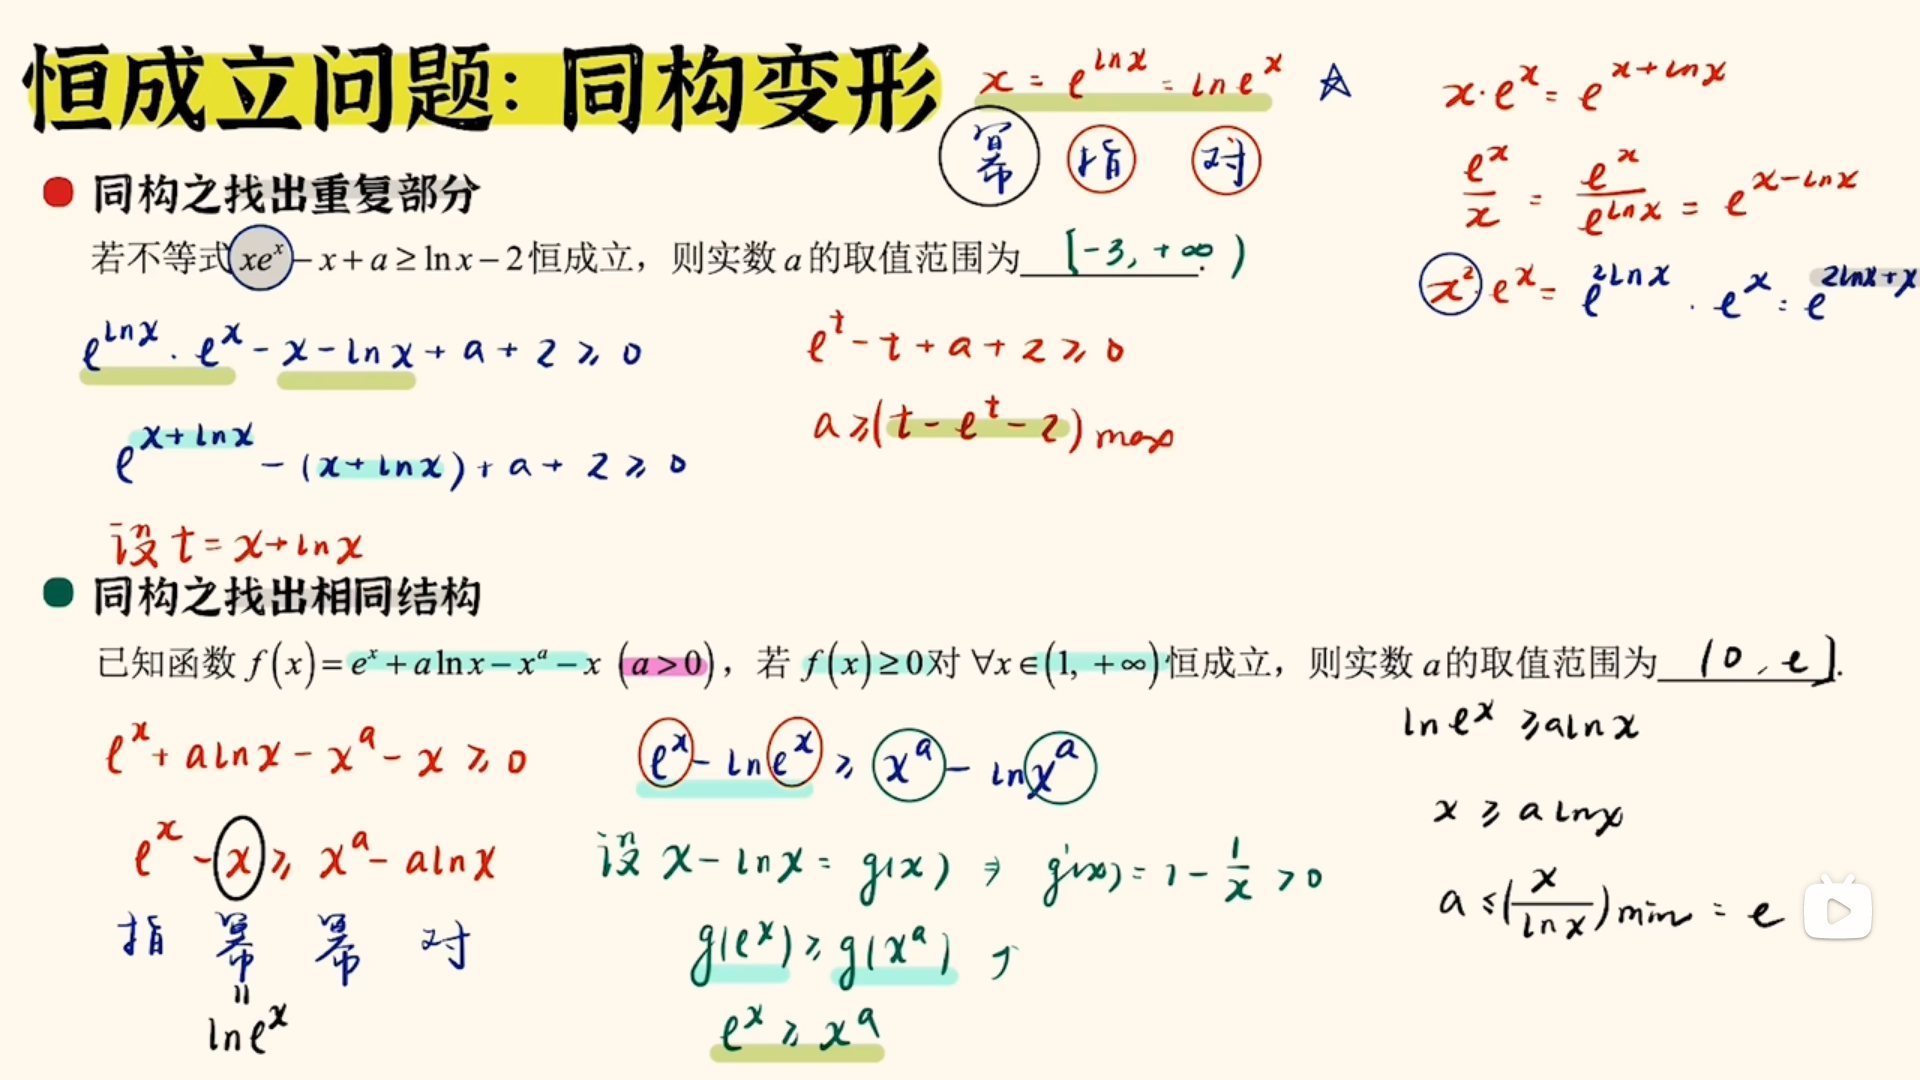 恒成立问题：同构变形
x = e^{lnx} = ln e^x ☆
幂 指 对
x·e^x = e^{x+lnx}
e^x/x = e^x/e^{lnx} = e^{x-lnx}
x²·e^x = e^{2lnx}·e^x = e^{2lnx+x}
同构之找出重复部分
若不等式 xe^x - x + a ≥ ln x - 2 恒成立，则实数 a 的取值范围为 [-3, +∞).
e^{lnx}·e^x - x - lnx + a + 2 ≥ 0
e^{x+lnx} - (x+lnx) + a + 2 ≥ 0
设 t = x+lnx
e^t - t + a + 2 ≥ 0
a ≥ (t - e^t - 2) max
同构之找出相同结构
已知函数 f(x) = e^x + a ln x - x^a - x (a > 0)，若 f(x) ≥ 0 对 ∀x ∈ (1, +∞) 恒成立，则实数 a 的取值范围为 (0, e].
e^x + alnx - x^a - x ≥ 0
e^x - x ≥ x^a - alnx
指 幂 幂 对
=
ln e^x
e^x - ln e^x ≥ x^a - ln x^a
设 x - lnx = g(x) ⇒ g'(x) = 1 - 1/x > 0
g(e^x) ≥ g(x^a) ↗
e^x ≥ x^a
ln e^x ≥ alnx
x ≥ alnx
a ≤ (x/lnx) min = e